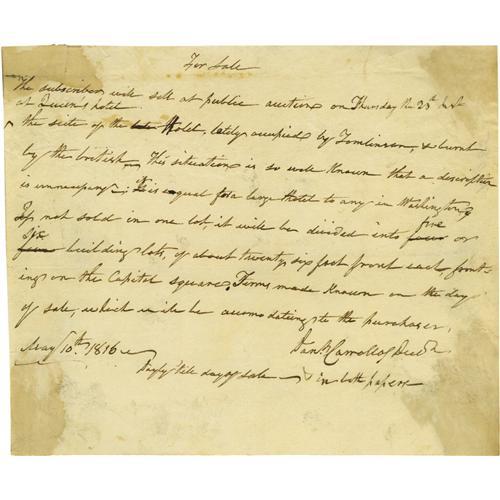 For Sale
The subscriber will sell at public auction on Thursday the 23d inst
at Queen's hotel
the scite of the late Hotel, lately occupied by Tomlinson, & burnt
by the british. This situation is so well Known that a description
is unnecessary. It is equal for a large Hotel to any in Washington,
If not sold in one lot, it will be divided into four five or
five six building lots, of about twenty six feet front each, front-
ing on the Capitol square. Terms made Known on the day
of sale, which will be accomodating to the purchaser,
Danl Carroll of Dudn
May 10th 1816
Dayly till day of sale in both papers